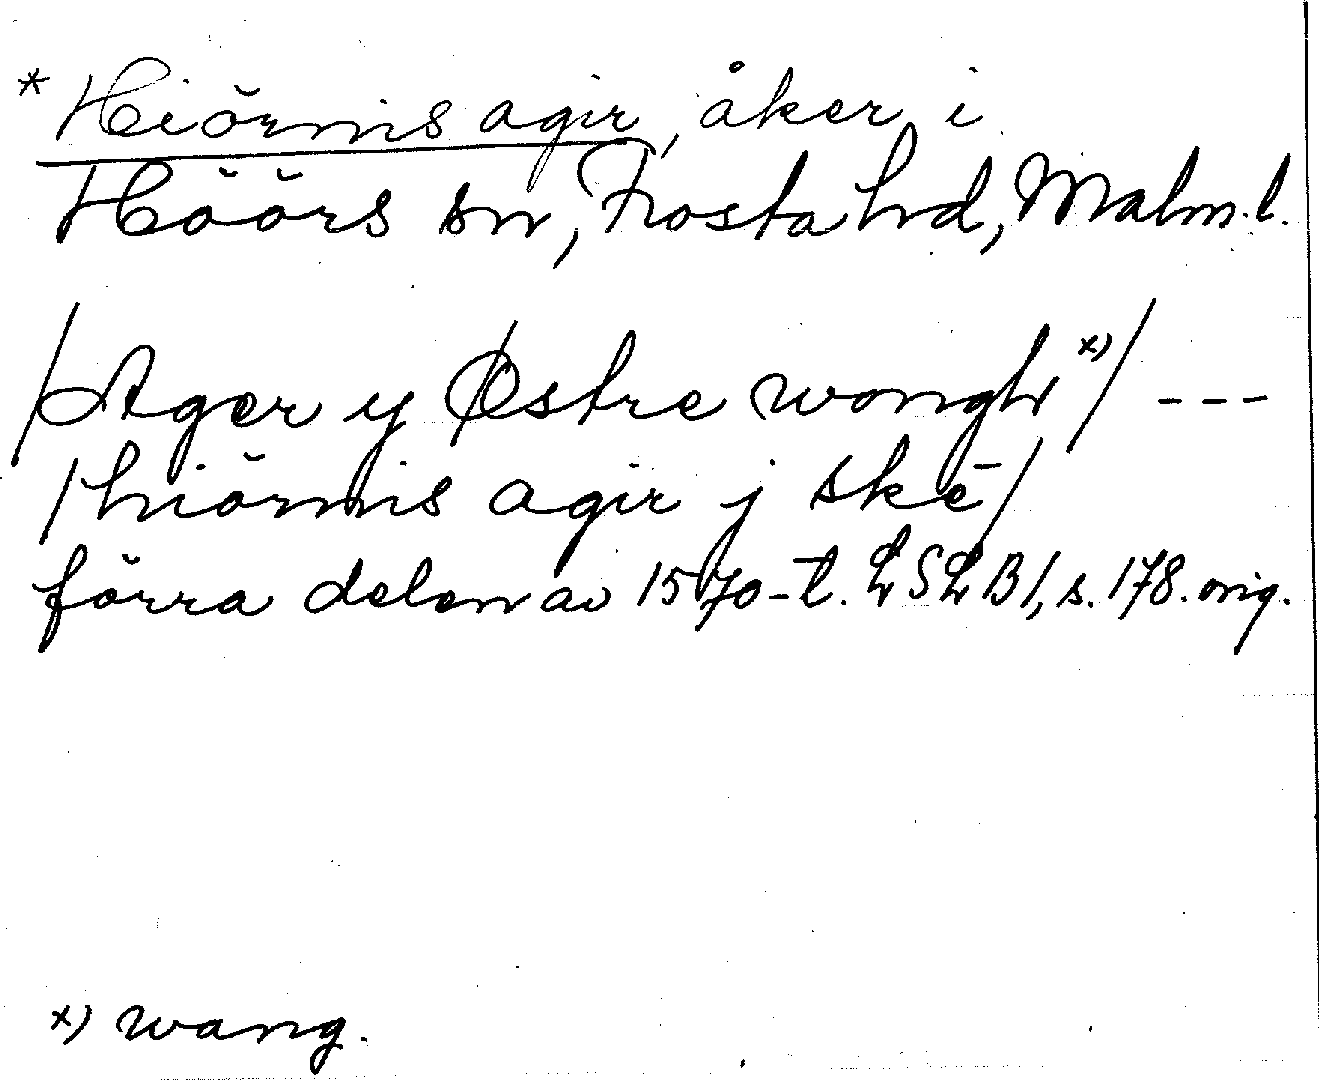 * Hiörnis agir, åker i
Höörs sn, Frosta hd, Malm.l.
/Ager y Østre wongh x)/ ---
/hiörnis agir j skē/
förra delen av 1570-t. LSLB1, s. 178. orig.
x) wang.